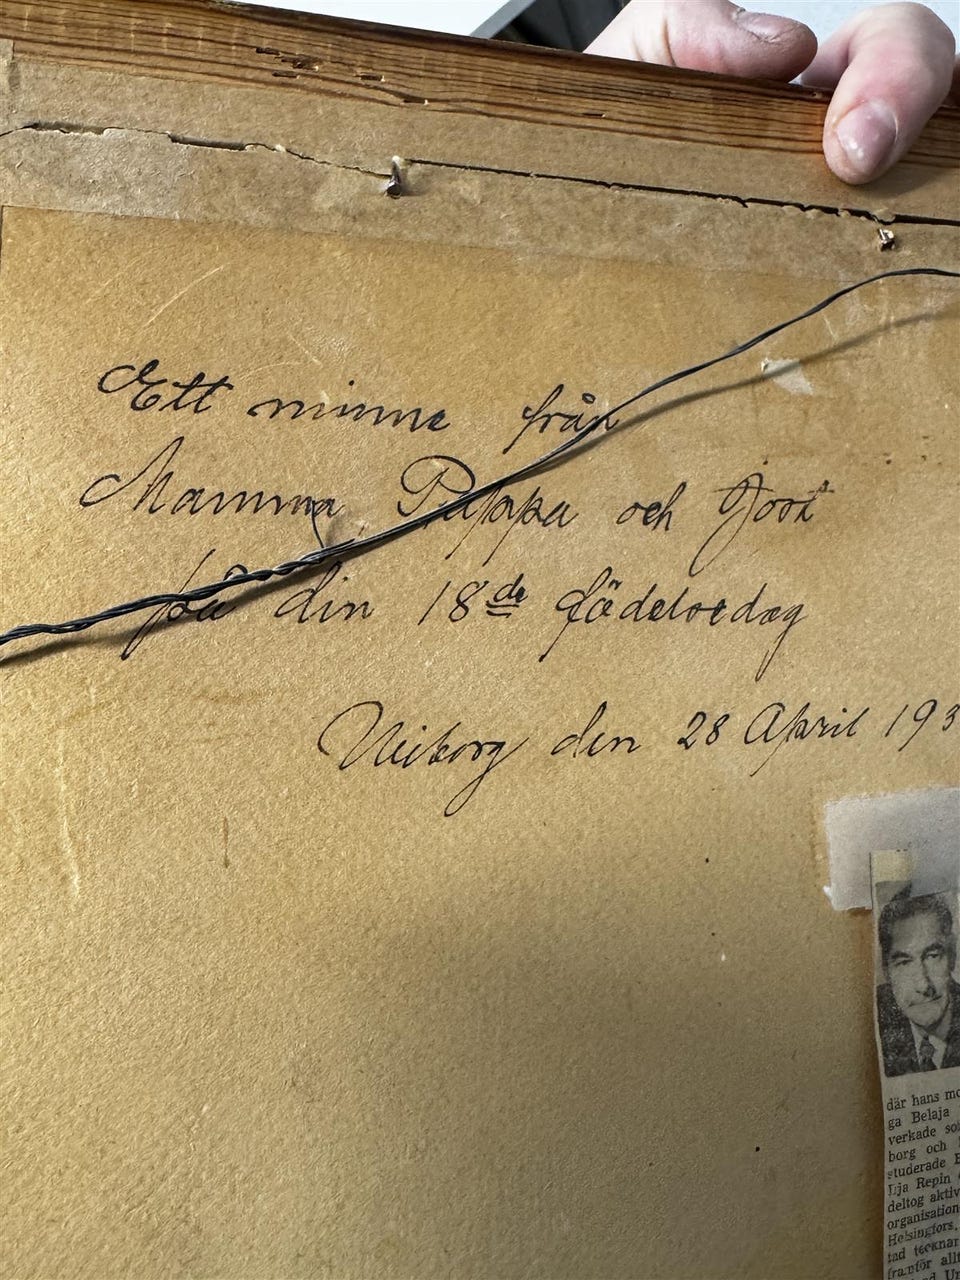 Ett minne från
Mamma, Pappa och
på din 18de födelsedag
Wiborg den 28 April 193
där hans mo
ga Belaja
verkade so
borg och
studerade
Ilja Repin
deltog aktiv
organisation
Helsingfors,
tad tecknar
framför allt